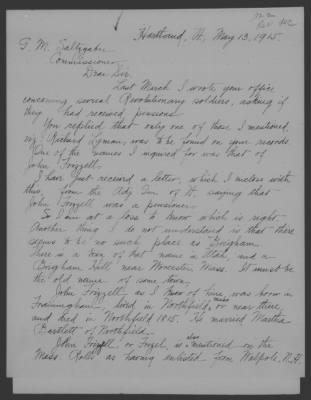 Hartland, Vt. May 13, 1915
G. M. Saltzgaber
Commissioner
Dear Sir
Last March I wrote your office
concerning several Revolutionary soldiers, asking if
they had received pensions.
You replied that only one of those I mentioned,
viz Richard Lyman, was to be found on your records
One of the names I inquired for was that of
John Frizzell.
I have just received a letter, which I inclose with
this, from the Adj Gen of Vt. saying that
John Frizzell was a pensioner.
So I am at a loss to know which is right.
Another thing I do not understand is that there
seems to be no such place as Brigham.
There is a town of that name in Utah, and a
Brigham Hill near Worcester, Mass. It must be
the old name of some town.
John Frizzell as I know of him was born in
Framingham, lived in Northfield, Mass or near there
and died in Northfield 1815. He married Martha
Bartlett of Northfield.
John Frizzell or Frizel is also mentioned on the
Mass. Rolls as having enlisted from Walpole, N.H.